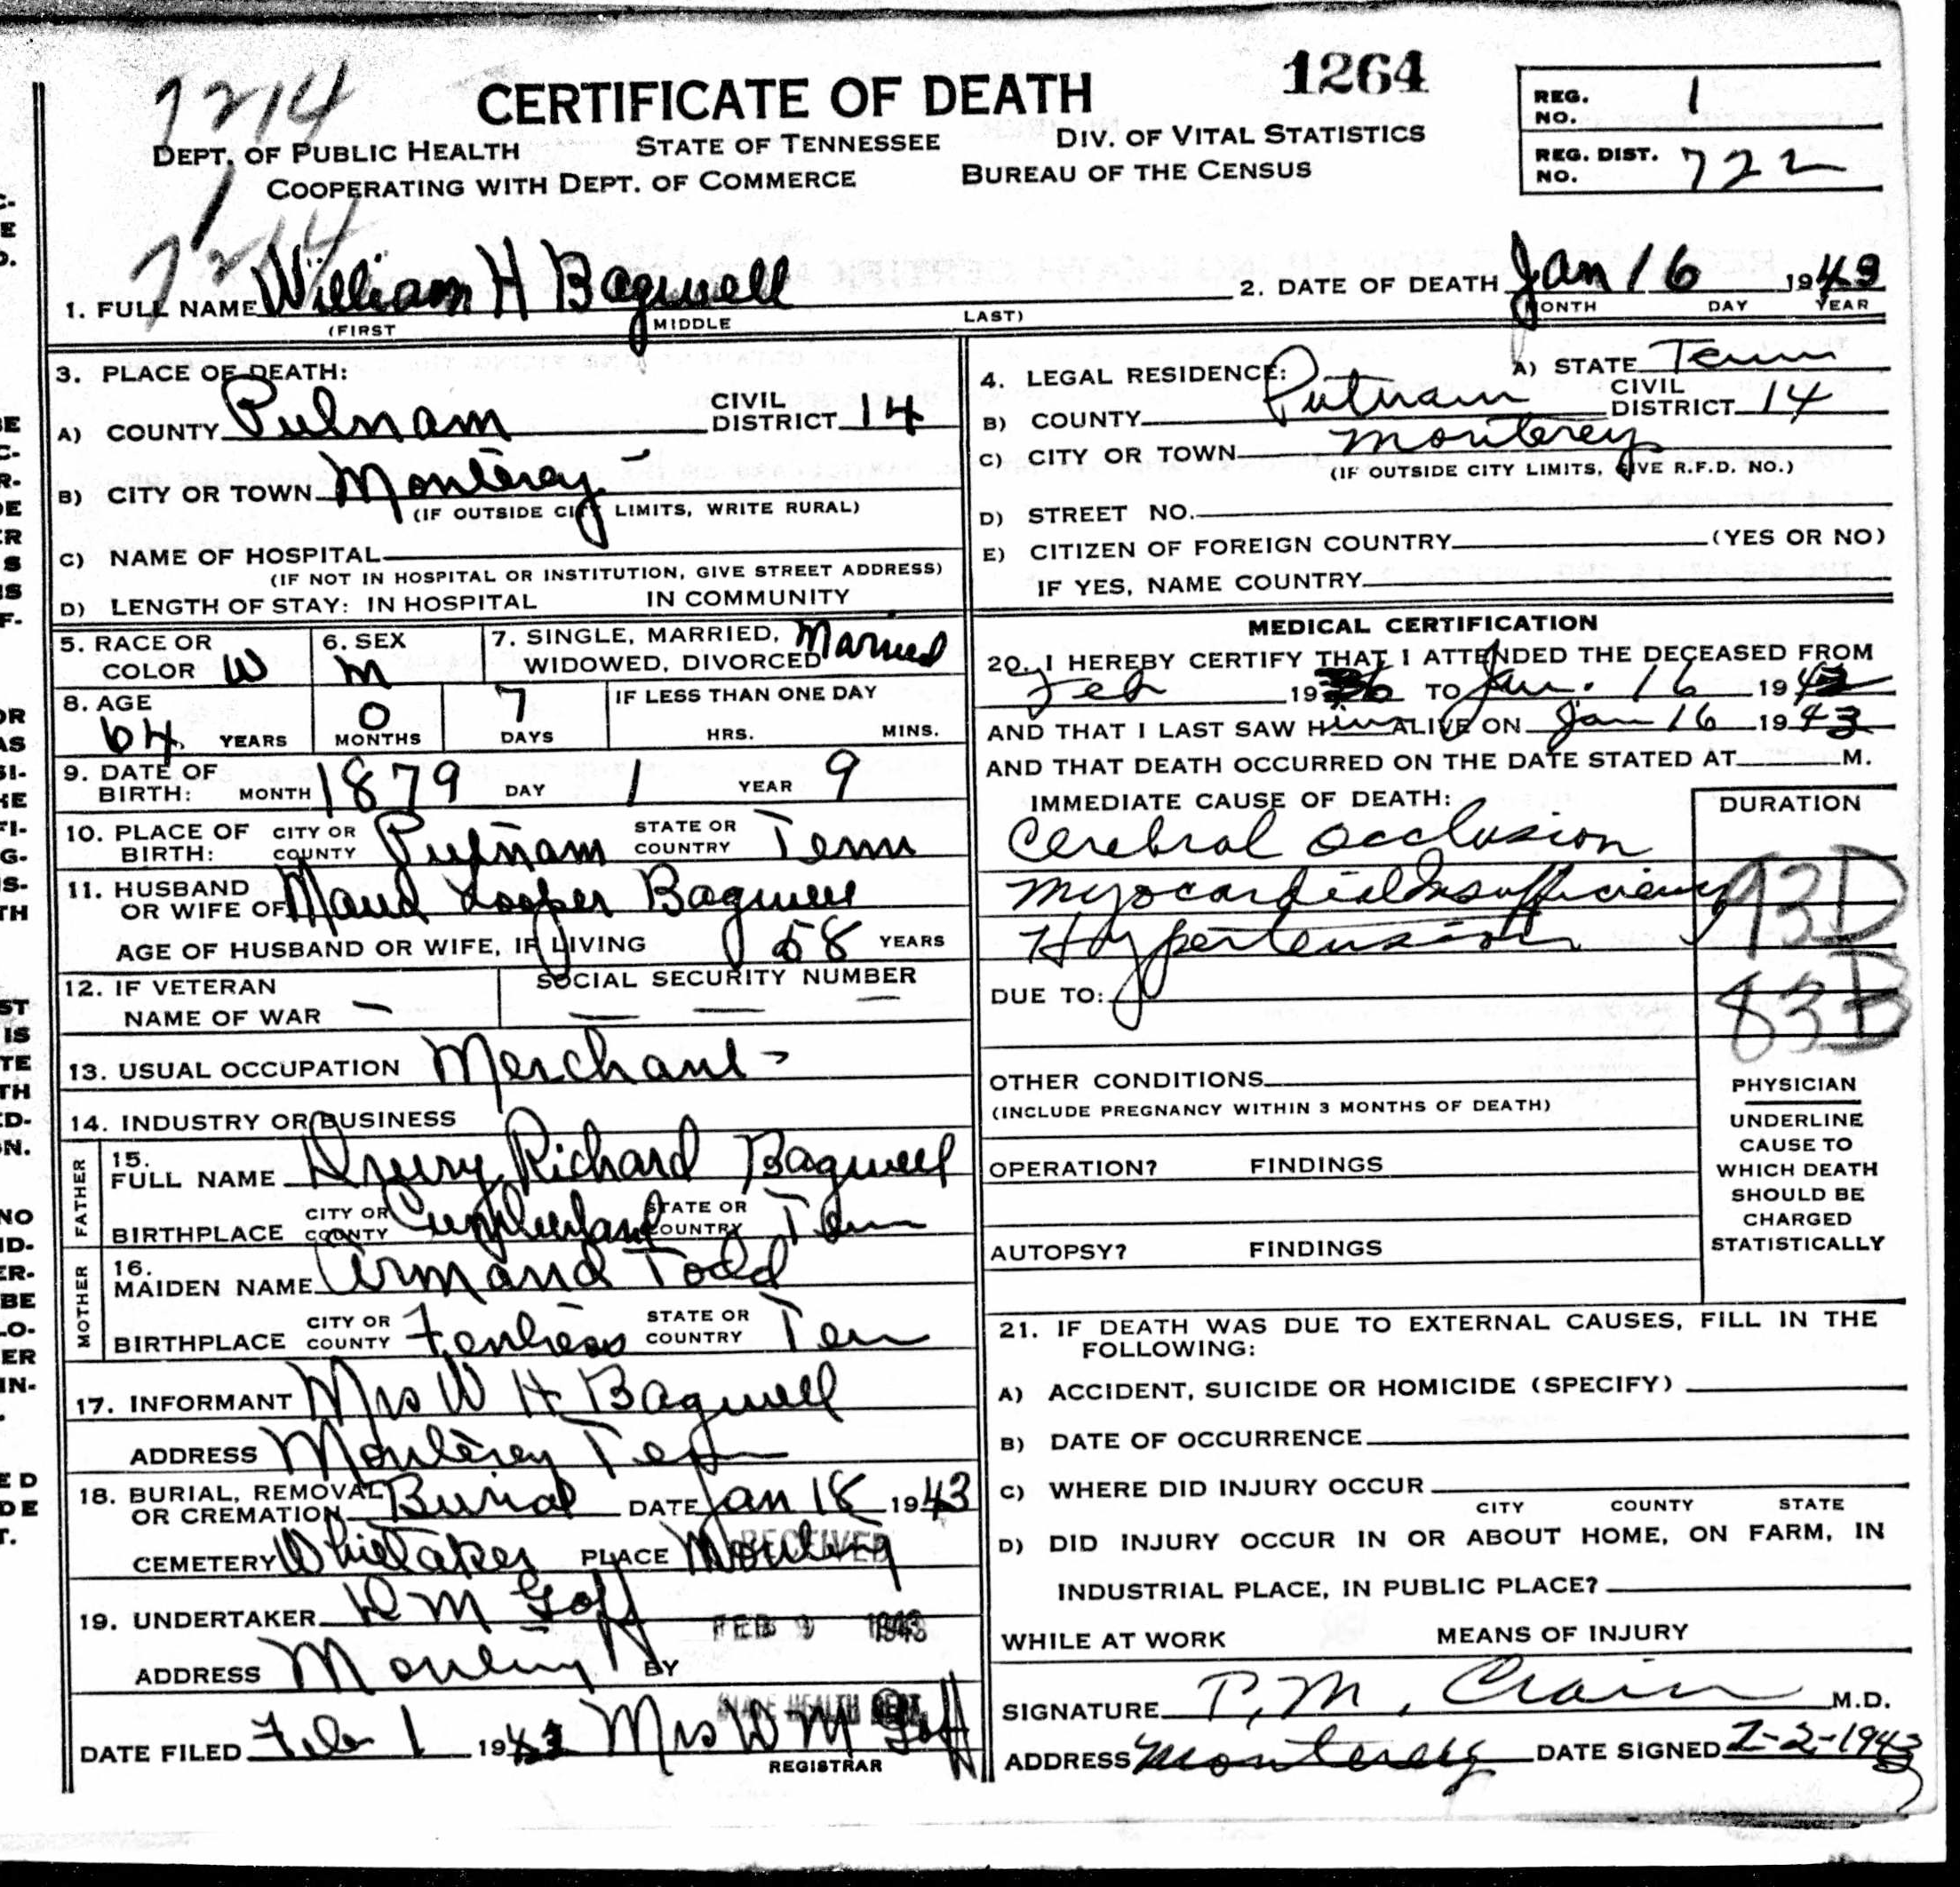 7214
CERTIFICATE OF DEATH
1264
REG. NO. 1
DEPT. OF PUBLIC HEALTH STATE OF TENNESSEE DIV. OF VITAL STATISTICS
COOPERATING WITH DEPT. OF COMMERCE BUREAU OF THE CENSUS
REG. DIST. NO. 722
7214
1. FULL NAME William H Bagwell
(FIRST MIDDLE LAST)
2. DATE OF DEATH Jan 16 1943
MONTH DAY YEAR
3. PLACE OF DEATH:
A) COUNTY Putnam CIVIL DISTRICT 14
B) CITY OR TOWN Monterey
(IF OUTSIDE CITY LIMITS, WRITE RURAL)
C) NAME OF HOSPITAL
(IF NOT IN HOSPITAL OR INSTITUTION, GIVE STREET ADDRESS)
D) LENGTH OF STAY: IN HOSPITAL IN COMMUNITY
4. LEGAL RESIDENCE: A) STATE Tenn
B) COUNTY Putnam CIVIL DISTRICT 14
C) CITY OR TOWN Monterey
(IF OUTSIDE CITY LIMITS, GIVE R.F.D. NO.)
D) STREET NO.
E) CITIZEN OF FOREIGN COUNTRY (YES OR NO)
IF YES, NAME COUNTRY
5. RACE OR COLOR W
6. SEX M
7. SINGLE, MARRIED, WIDOWED, DIVORCED Married
8. AGE 64 YEARS 0 MONTHS 7 DAYS IF LESS THAN ONE DAY HRS. MINS.
9. DATE OF BIRTH: MONTH 1879 DAY 1 YEAR 9
10. PLACE OF BIRTH: CITY OR COUNTY Putnam STATE OR COUNTRY Tenn
11. HUSBAND OR WIFE OF Maud Looper Bagwell
AGE OF HUSBAND OR WIFE, IF LIVING 58 YEARS
12. IF VETERAN NAME OF WAR — SOCIAL SECURITY NUMBER — — —
13. USUAL OCCUPATION Merchant -
14. INDUSTRY OR BUSINESS
FATHER
15. FULL NAME Drury Richard Bagwell
BIRTHPLACE CITY OR COUNTY Cumberland STATE OR COUNTRY Tenn
MOTHER
16. MAIDEN NAME Armand Todd
BIRTHPLACE CITY OR COUNTY Fentress STATE OR COUNTRY Ten
17. INFORMANT Mrs W H Bagwell
ADDRESS Monterey Tenn
18. BURIAL, REMOVAL OR CREMATION Burial DATE Jan 18 1943
CEMETERY Whittaker PLACE Monterey
RECEIVED
19. UNDERTAKER W M Goff
FEB 9 1943
ADDRESS Monterey BY
STATE HEALTH DEPT.
DATE FILED Feb 1 1943 Mrs W M Goff
REGISTRAR
MEDICAL CERTIFICATION
20. I HEREBY CERTIFY THAT I ATTENDED THE DECEASED FROM
Feb 1936 TO Jan. 16 1943
AND THAT I LAST SAW HIM ALIVE ON Jan 16 1943
AND THAT DEATH OCCURRED ON THE DATE STATED AT M.
IMMEDIATE CAUSE OF DEATH: DURATION
Cerebral Occlusion
Myocardial Insufficiency 93D
Hypertension
DUE TO: 83B
OTHER CONDITIONS
(INCLUDE PREGNANCY WITHIN 3 MONTHS OF DEATH)
OPERATION? FINDINGS
AUTOPSY? FINDINGS
PHYSICIAN
UNDERLINE
CAUSE TO
WHICH DEATH
SHOULD BE
CHARGED
STATISTICALLY
21. IF DEATH WAS DUE TO EXTERNAL CAUSES, FILL IN THE
FOLLOWING:
A) ACCIDENT, SUICIDE OR HOMICIDE (SPECIFY)
B) DATE OF OCCURRENCE
C) WHERE DID INJURY OCCUR
CITY COUNTY STATE
D) DID INJURY OCCUR IN OR ABOUT HOME, ON FARM, IN
INDUSTRIAL PLACE, IN PUBLIC PLACE?
WHILE AT WORK MEANS OF INJURY
SIGNATURE T. M. Crain M.D.
ADDRESS Monterey DATE SIGNED 2-2-1943